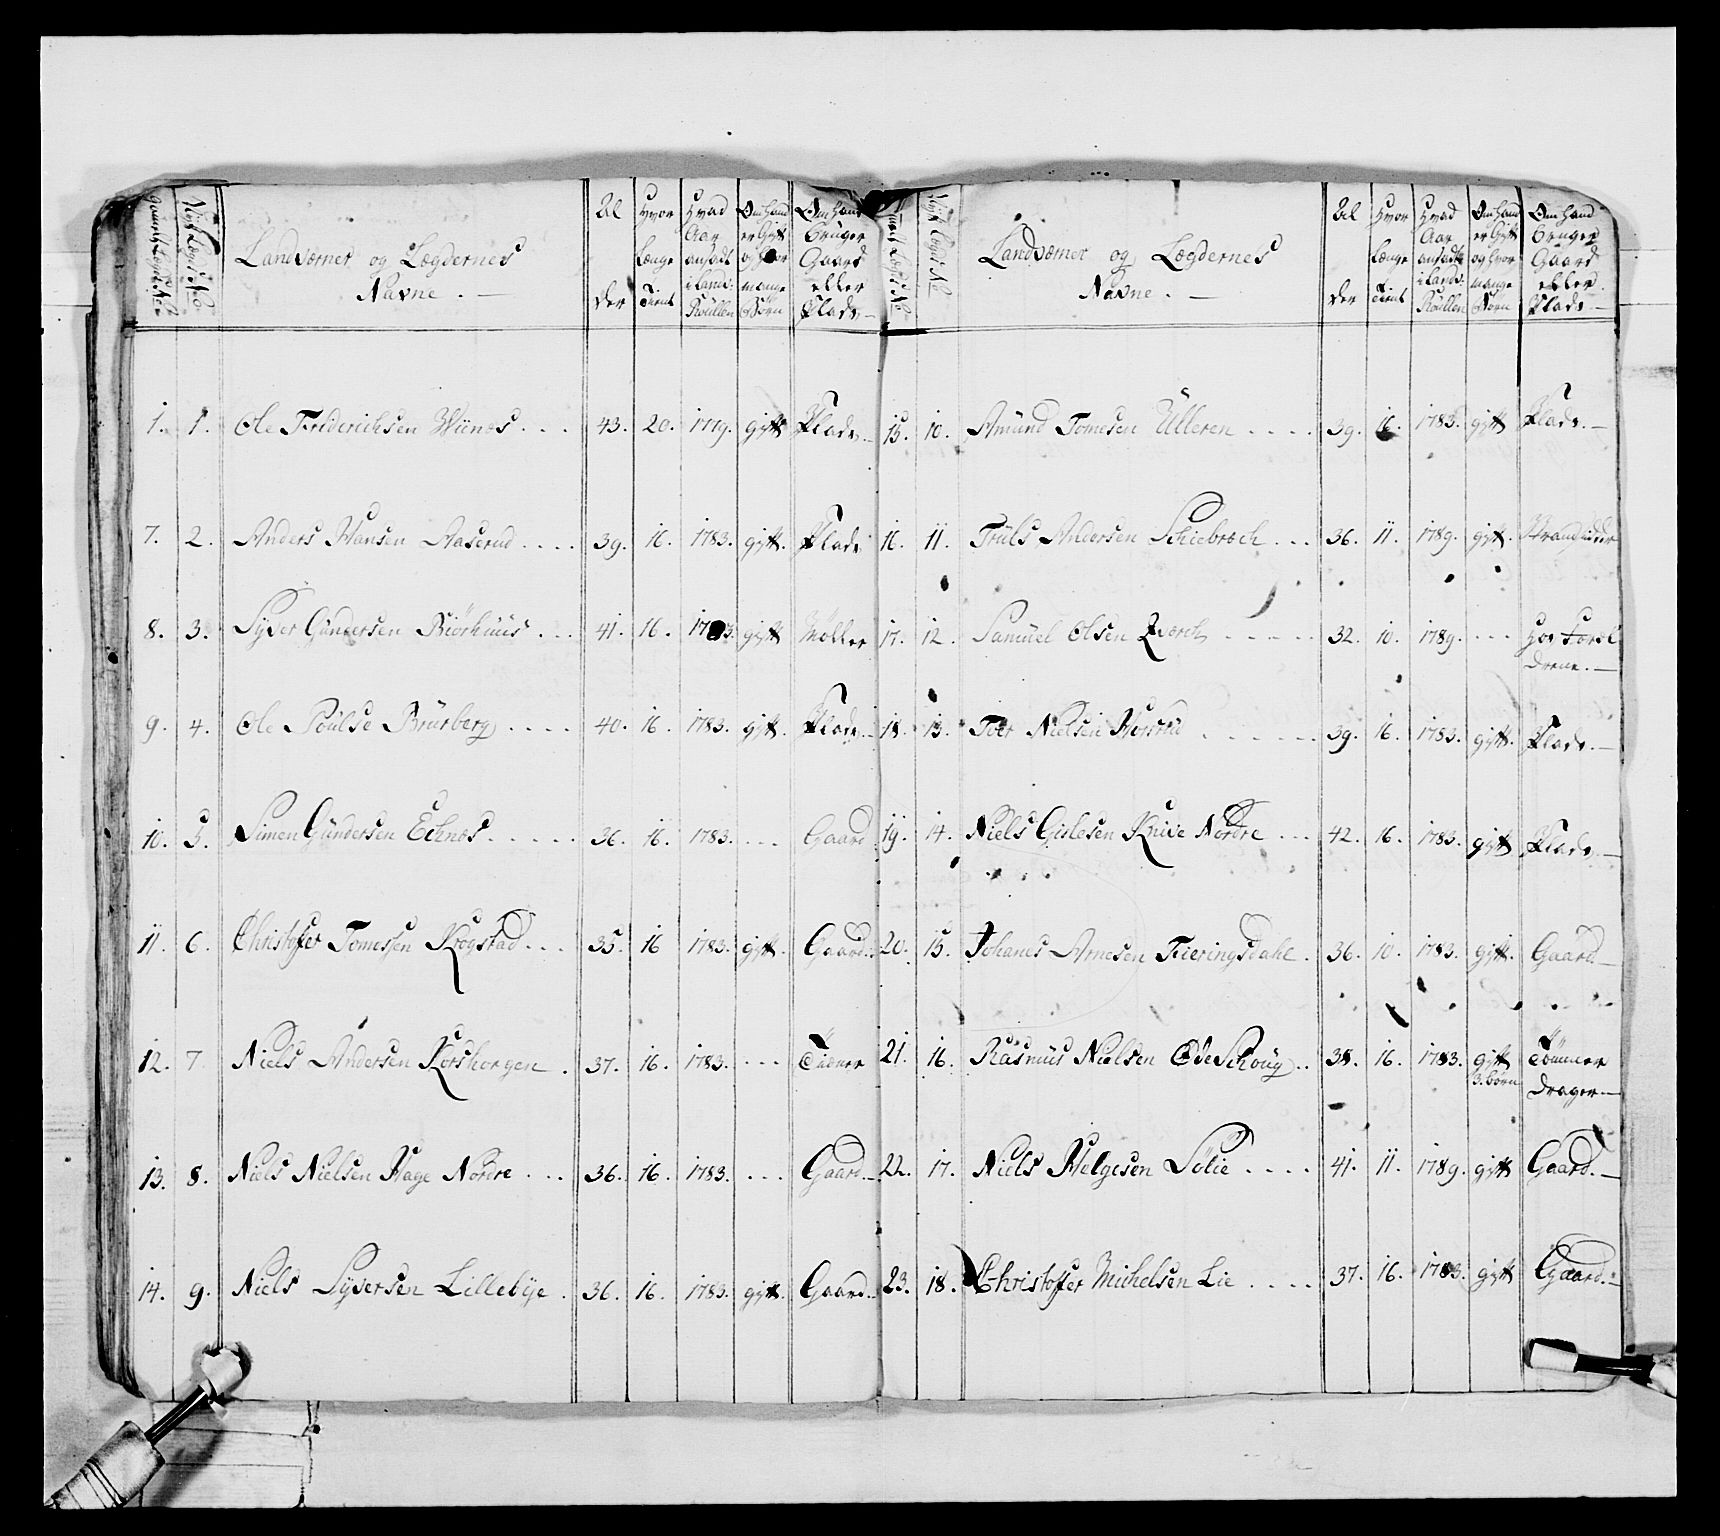 Nye Lægds No
Landværner og Lægdernes
Navne. —
Al
der
Hvor
Længe
Tient
Hvad
Aar
ansadt
i Landv.
Roullen
Om Hand
er Gift
og Hvor
mange
Børn
Om Hand
bruger
Gaard
eller
Plads —
1. 1. Ole Friderichsen Wiinæs . . . 43. 20. 1779. gift Plads. —
7. 2. Anders Hansen Aaserud . . . . 39. 16. 1783. gift. Plads
8. 3. Syver Gundersen Biörhuus . . . 41. 16. 1783. gift Møller
9. 4. Ole Poulse Brurberg . . . . 40. 16. 1783. gift. Plads. —
10. 5. Simen Gundersen Echnæs . . . . . 36. 16. 1783. . . . Gaard
11. 6. Christoffer Tomessen Krogstad . . . 35. 16 1783. gift. Gaard. —
12. 7. Niels Andersen Korshorgen . 37. 16. 1783. . . . Tiener
13. 8. Niels Nielsen Hage Nordre . . . 36. 16. 1783. . . . Gaard. —
14. 9. Niels Syversen Lillebye . 36. 16. 1783. gift. Gaard. —
Landværner og Lægdernes
Navne. —
Al
der
Hvor
Længe
Tient
Hvad
Aar
ansadt
i Landv.
Roullen
Om Hand
er Gift
og Hvor
mange
Børn
Om Hand
bruger
Gaard
eller
Plads —
15. 10. Amund Tomesen Ulleren . . . . 39. 16. 1783. gift Plads. —
16. 11. Truls Andersen Schiebræch . . . 36. 11. 1789. gift. Strandsidder
17. 12. Samuel Olsen Qværch . . . . . 32. 10. 1789. . . . Hos Foræl
drene. —
18. 13. Toer Nielsen . . . . . 39. 16. 1783. gift. Plads. —
19. 14. Niels Gislesen Knive Nordre . . . 42. 16. 1783. gift Plads. —
20. 15. Johanes Arnesen Tieringsdahl . 36. 10. 1783. gift. Gaard. —
21. 16. Rasmus Nielsen Øde Schoug . . 38. 16. 1783. gift Tømmer
3. børn drager —
22. 17. Niels Helgesen Solie . . . . 41. 11. 1789. gift Gaard. —
23. 18. Christoffer Michelsen Lie . . . . 37. 16. 1783. gift Gaard. —